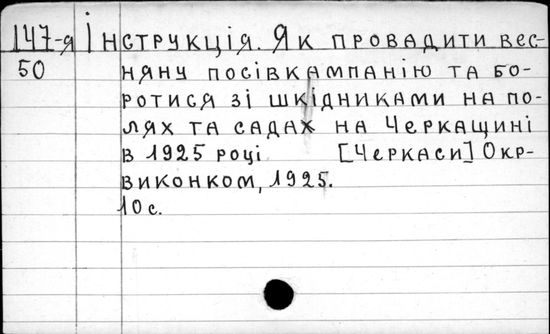 147-я Інструкція. Як провадити вес-
50 няну посівкампанію та бо-
ротися зі шкідниками на по-
лях та садах на Черкащині
в 1925 році [Черкаси] Окр-
виконком, 1925.
10 с.